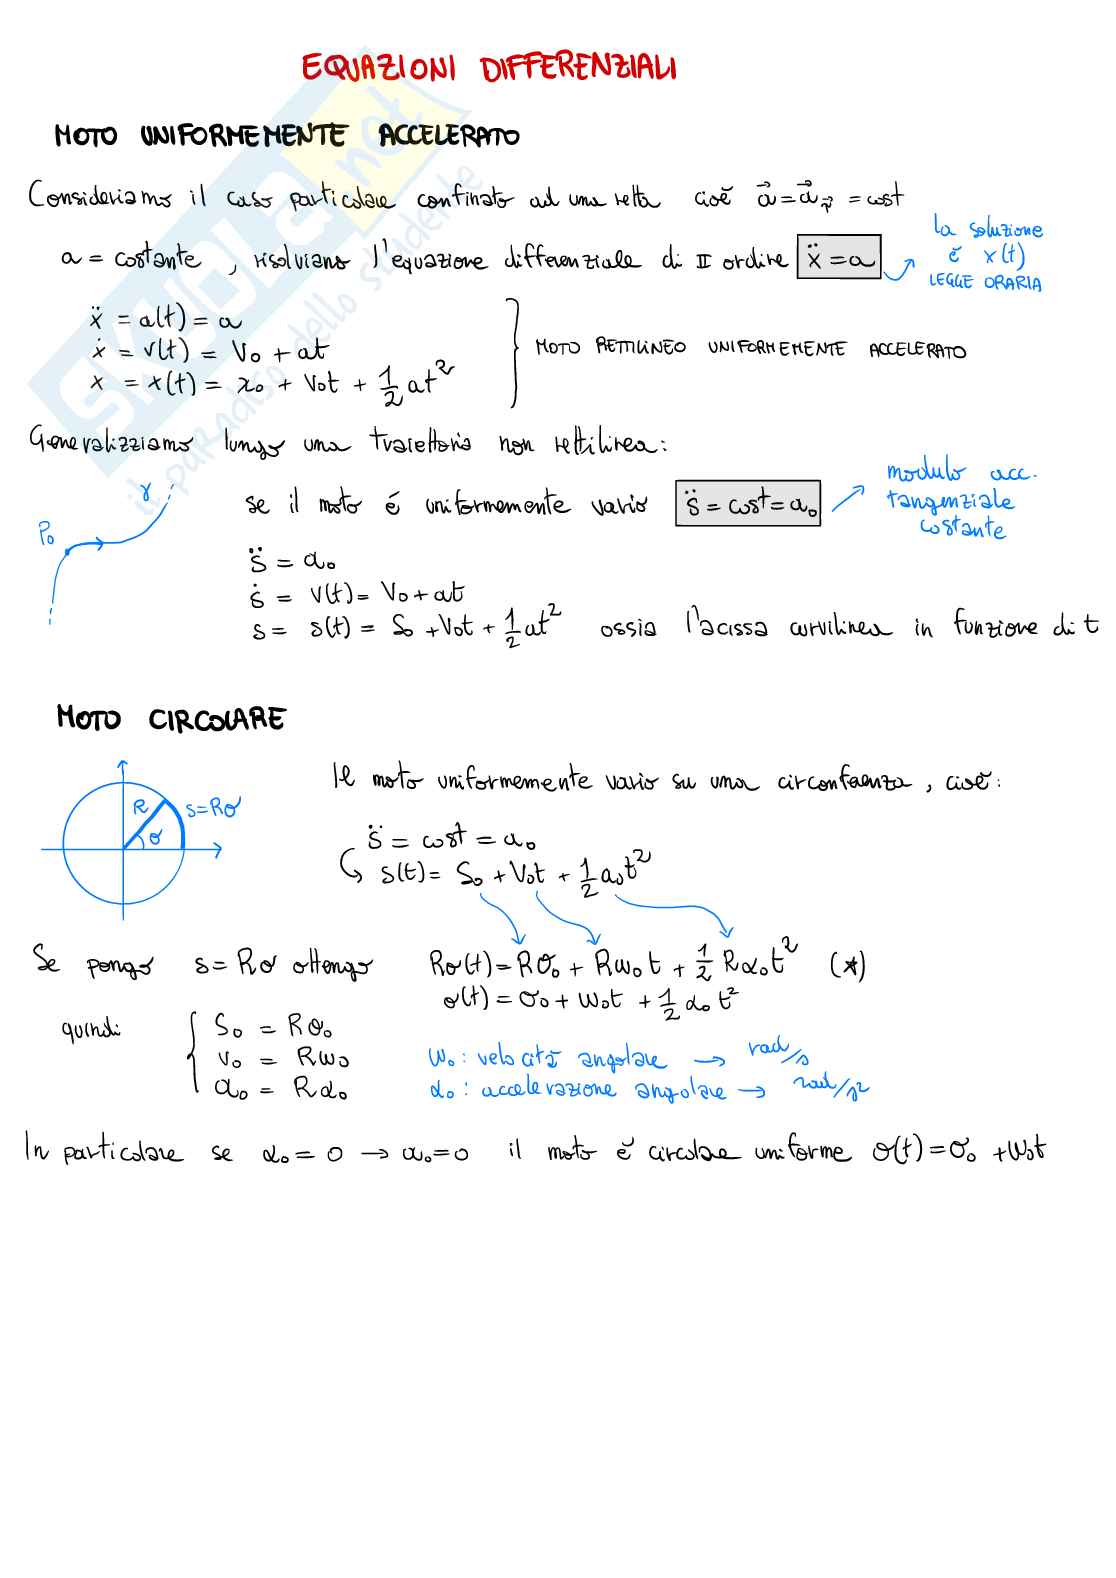 EQUAZIONI DIFFERENZIALI
MOTO UNIFORMEMENTE ACCELERATO
Consideriamo il caso particolare confinato ad una retta cioè a⃗ = a⃗_T = cost
a = costante , risolviamo l'equazione differenziale di II ordine ẍ = a
la soluzione
è x(t)
LEGGE ORARIA
ẍ = a(t) = a
ẋ = v(t) = V₀ + at
x = x(t) = x₀ + V₀t + 1/2 at²
MOTO RETTILINEO UNIFORMEMENTE ACCELERATO
Generalizziamo lungo una traiettoria non rettilinea:
γ
P₀
se il moto é uniformemente vario s̈ = cost = a₀
modulo acc.
tangenziale
costante
s̈ = a₀
ṡ = v(t) = V₀ + at
s = s(t) = S₀ + V₀t + 1/2 at² ossia l'acissa curvilinea in funzione di t
MOTO CIRCOLARE
R
s=Rθ
θ
Il moto uniformemente vario su una circonferenza , cioè:
s̈ = cost = a₀
s(t) = S₀ + V₀t + 1/2 a₀t²
Se pongo s = Rθ ottengo Rθ(t) = Rθ₀ + Rω₀t + 1/2 Rα₀t² (*)
θ(t) = θ₀ + ω₀t + 1/2 α₀t²
quindi
S₀ = Rθ₀
v₀ = Rω₀
a₀ = Rα₀
ω₀ : velocità angolare → rad/s
α₀ : accelerazione angolare → rad/s²
In particolare se α₀ = 0 → a₀ = 0 il moto è circolare uniforme θ(t) = θ₀ + ω₀t
SKUOLA.net
il paradiso dello studente